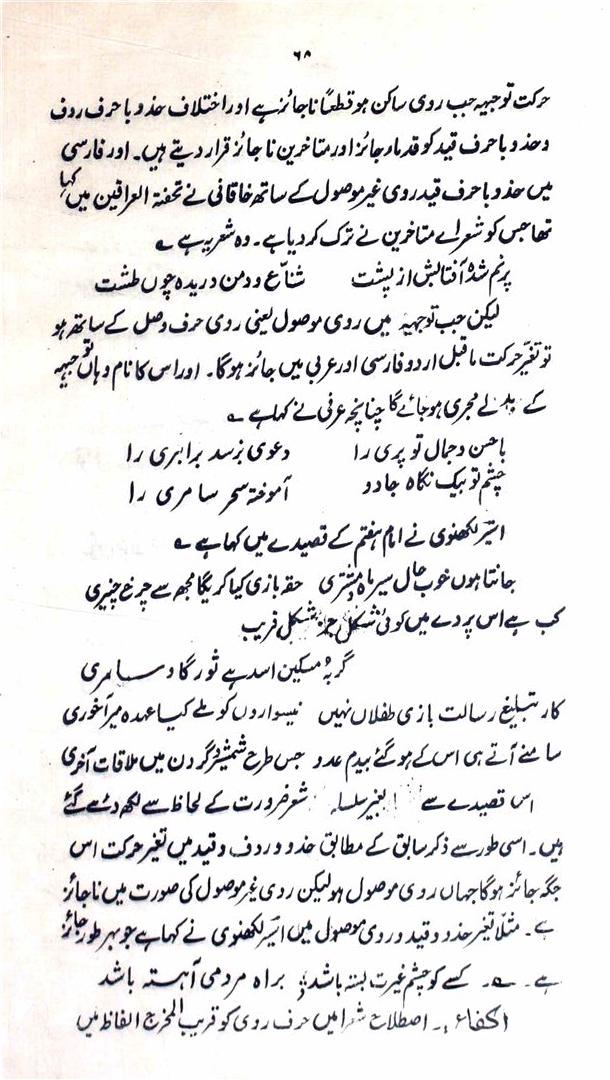 ۶۸
حرکت توجیہہ جب روی ساکن ہو قطعاً ناجائز ہے اور اختلاف حذو با حرف ردف
و حذو با حرف قید کو قدماء جائز اور متاخرین ناجائز قرار دیتے ہیں۔ اور فارسی
میں حذو با حرف قید روی غیر موصول کے ساتھ خاقانی نے تحفۃ العراقین میں کہا
تھا جس کو شعراے متاخرین نے ترک کر دیا ہے۔ وہ شعر یہ ہے ے
پرنم شدہ آفتابش از پشت شاّع و دمن دریدہ چوں طشت
لیکن جب توجیہہ میں روی موصول یعنی روی حرف وصل کے ساتھ ہو
تو تغیّر حرکت ماقبل اردو فارسی اور عربی میں جائز ہوگا۔ اور اس کا نام وہاں توجیہہ
کے بدلے مجری ہو جائے گا چنانچہ عرفی نے کہا ہے ے
با حسن و جمال تو پری را دعوی نرسد برابری را
چشم تو بیک نگاہ جادو آموختہ سحر سامری را
اسیر لکھنوی نے امام ہفتم کے قصیدے میں کہا ہے ے
جانتا ہوں خوب حال سیر ماہ و مشتری حقہ بازی کیا کریگا مجھ سے چرخ چنبری
کب ہے اس پردے میں کوئی شکل جز شکل فریب
گربہ مسکین اسد ہے ثور گاو سامری
کار تبلیغ رسالت بازی طفلاں نہیں نیسواروں کو ملے کیا عہدہ میر آخوری
سامنے آتے ہی اس کے ہو گئے بیدم عدو جس طرح شمشیر و گردن میں ملاقات آخری
اس قصیدے سے بغیر سلسلہ شعر ضرورت کے لحاظ سے لکھ دئے گئے
ہیں۔ اسی طور سے ذکر سابق کے مطابق حذو و ردف و قید میں تغیر حرکت اس
جگہ جائز ہوگا جہاں روی موصول ہو لیکن روی غیر موصول کی صورت میں ناجائز
ہے۔ مثلاً تغیر حذو و قید و روی موصول میں اسیر لکھنوی نے کہا ہے جو بہر طور جائز
ہے۔ ے۔ کسے کو چشم غیرت بستہ باشد براہ مردمی آہستہ باشد
اکفاء۔ اصطلاح شعرا میں حرف روی کو قریب المخرج الفاظ میں